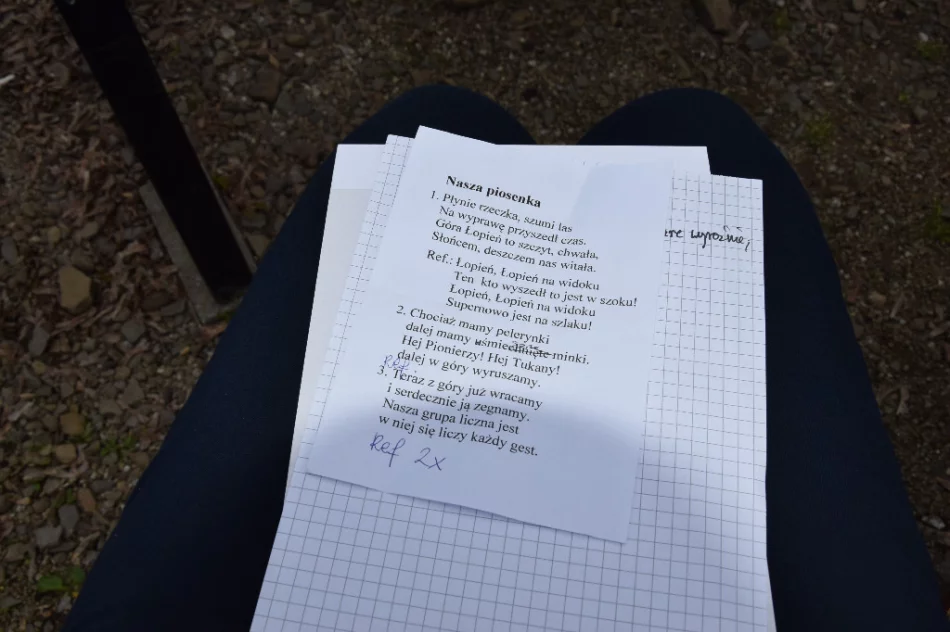 Nasza piosenka
1. Płynie rzeczka, szumi las
Na wyprawę przyszedł czas.
Góra Łopień to szczyt, chwała,
Słońcem, deszczem nas witała.
Ref.: Łopień, Łopień na widoku
Ten kto wyszedł to jest w szoku!
Łopień, Łopień na widoku
Supernowo jest na szlaku!
2. Chociaż mamy pelerynki
dalej mamy uśmiechnięte minki.
Hej Pionierzy! Hej Tukany!
dalej w góry wyruszamy.
Ref
3. Teraz z góry już wracamy
i serdecznie ją żegnamy.
Nasza grupa liczna jest
w niej się liczy każdy gest.
Ref 2x